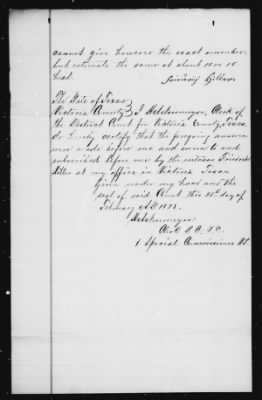 cannot give however the exact number
but estimate the same at about 10 or 15
head.
The State of Texas
Victoria County } I Hetelmeyer, Clerk of
the District Court for Victoria County, Texas,
do hereby certify that the foregoing answers
were made before me and sworn to and
subscribed before me by the witness Friedrich
at my office in Victoria Texas
Given under my hand and the
seal of said Court this day of
February AD
Clerk D.C. V.C.
& Special Commissioner